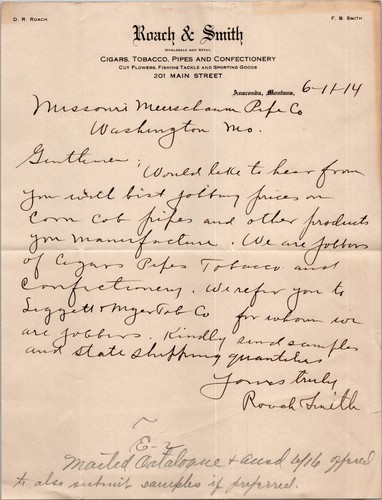 D. R. Roach
F. B. Smith
Roach & Smith
Wholesale and Retail
Cigars, Tobacco, Pipes and Confectionery
Cut Flowers, Fishing Tackle and Sporting Goods
201 Main Street
Anaconda, Montana, 6-11-14
Missouri Meerschaum Pipe Co
Washington Mo.
Gentlemen;
Would like to hear from
you with best jobbing prices on
Corn Cob pipes and other products
you manufacture. We are jobbers
of Cigars Pipes Tobacco and
Confectionery. We refer you to
Liggett & Myer Tob Co for whom we
are jobbers. Kindly send samples
and state shipping quantities
Yours truly
Roach Smith
Mailed Catalogue + ansd 6/16 offered
to also submit samples if preferred.